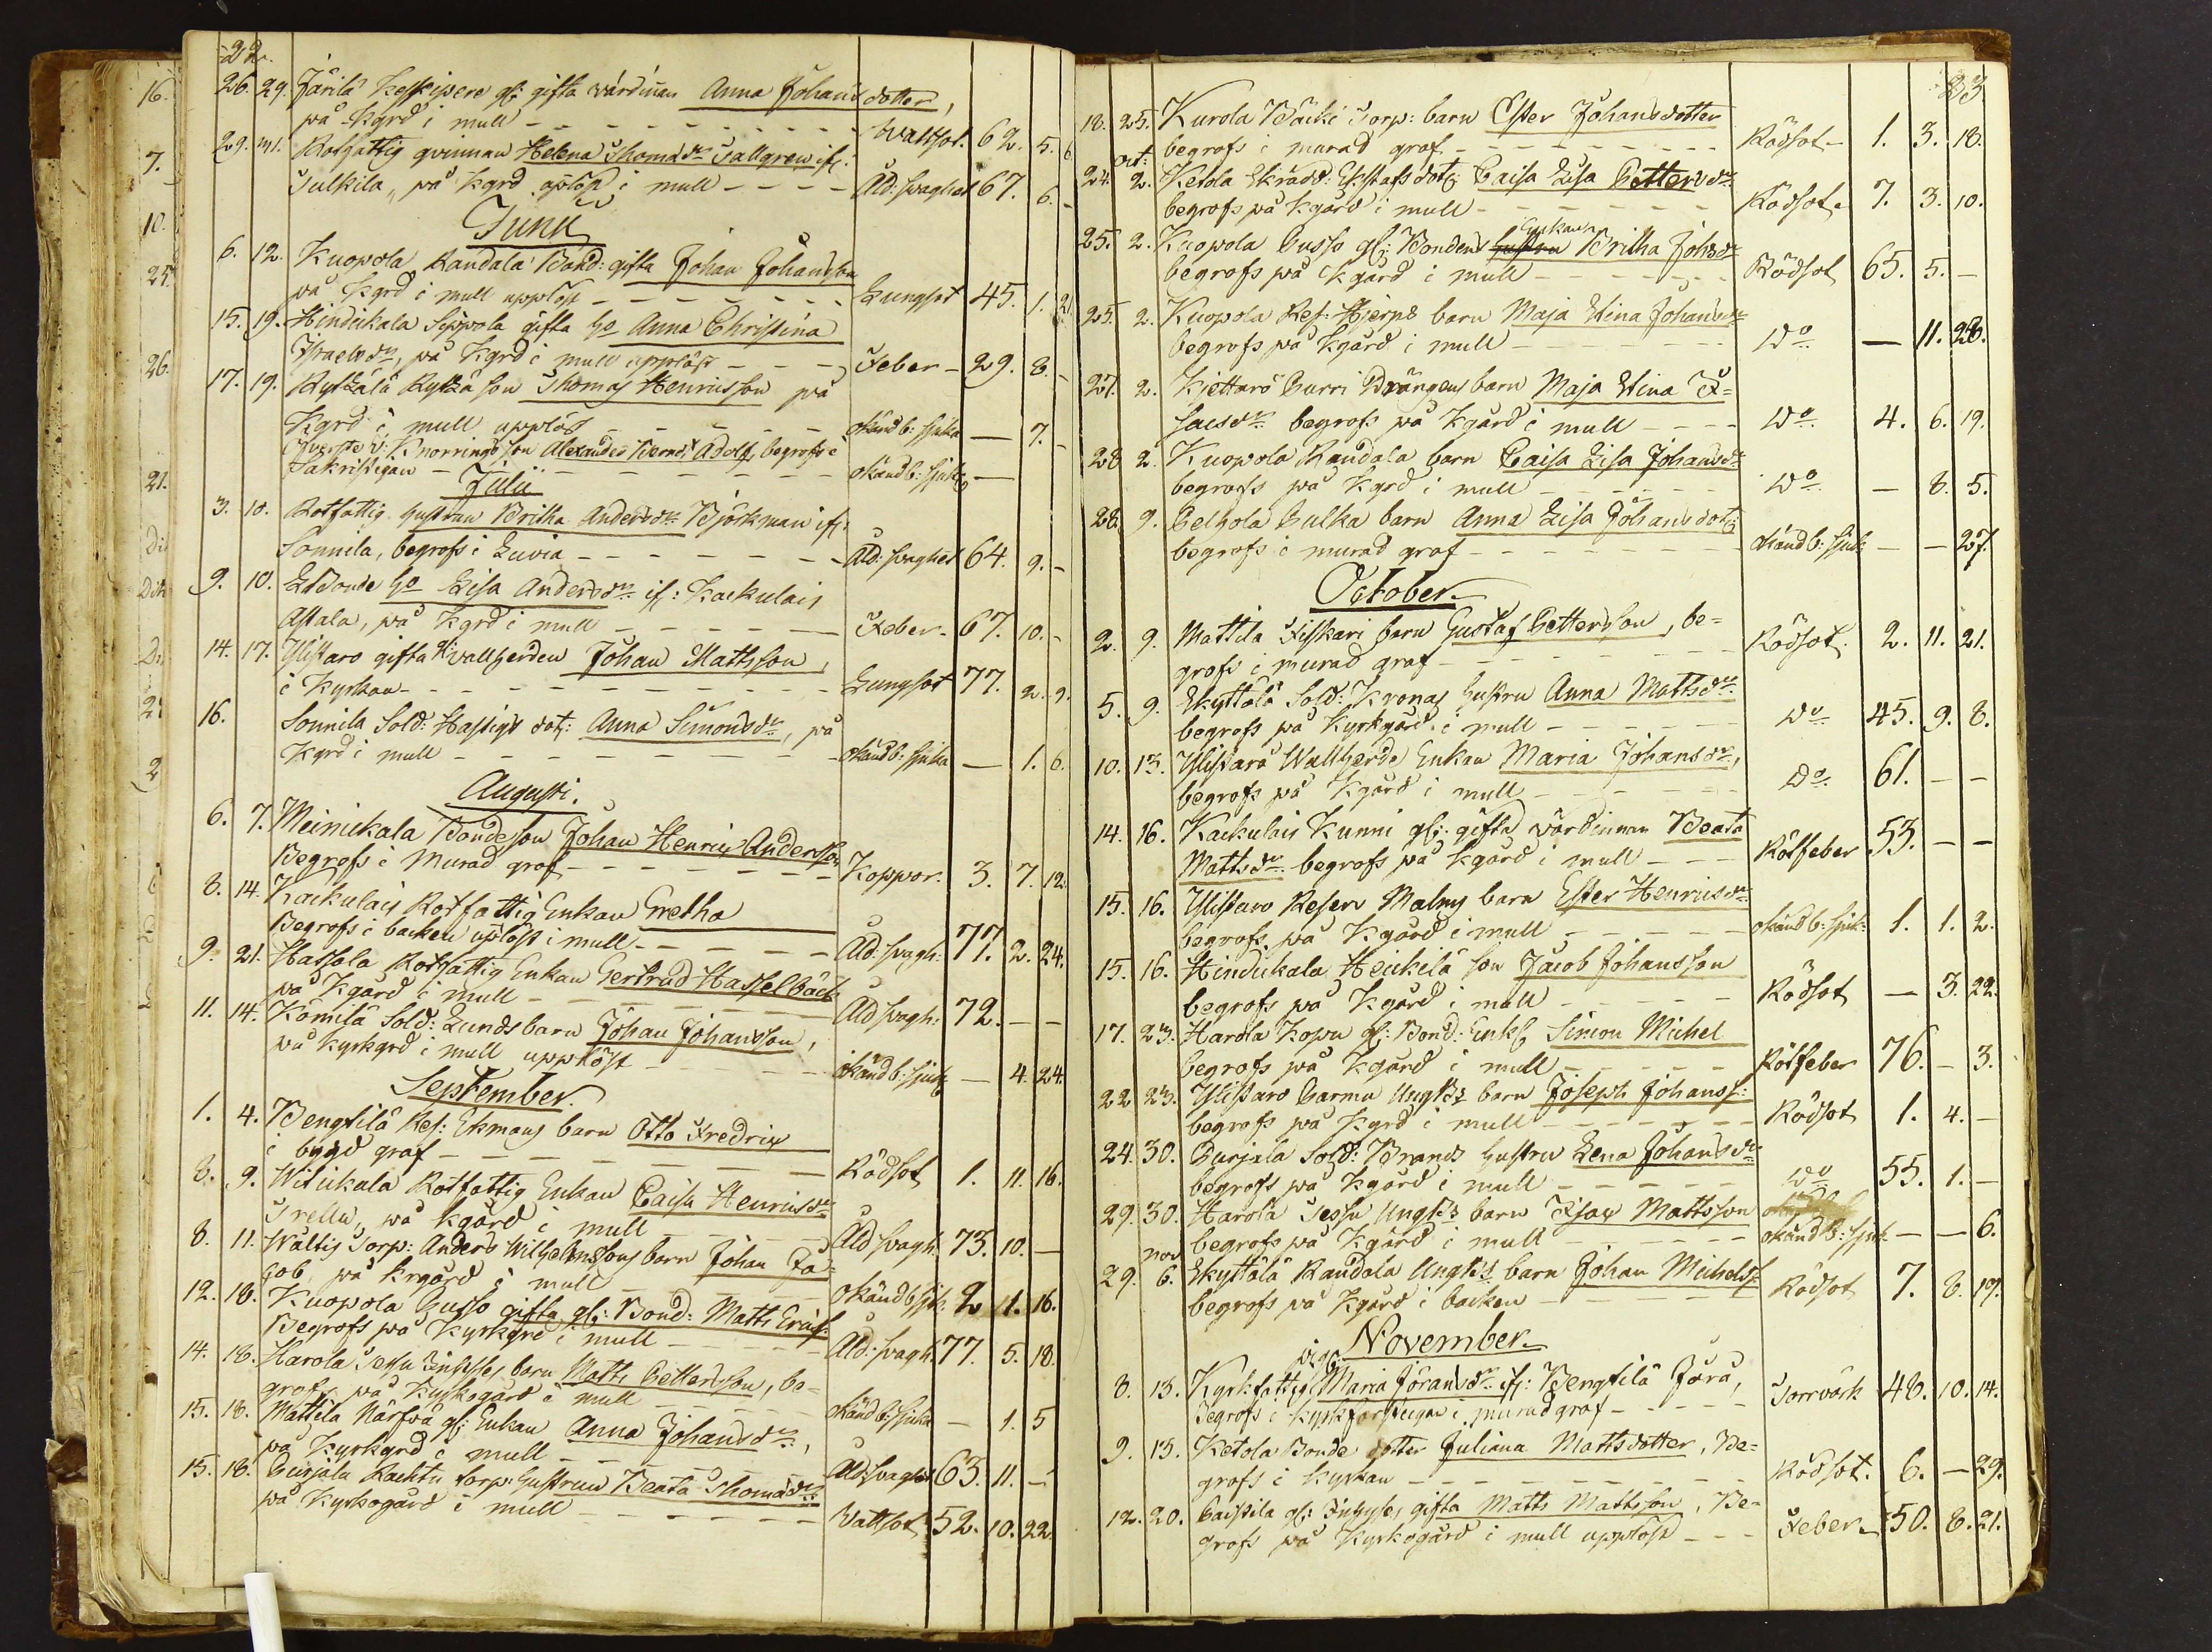 22.
26. 29. Järilä gl: gifta wärdinan Anna Johans dotter,
på Kgrd i mull Wattsot. 62. 5. 6
29. Rotfattig qvinnan Helena Thomasdr Tallgren ifr:
Tulkila, på Kgrd i mull Ald: svaghet 67. 6. -
Junii
6. 12. Kuopola Randala Bond: gifta Johan Johansson
på Kgrd i mull upplöst Lungsot 45. 1. 21
15. 19. Hindickala Seppola gifta Ho Anna Christina
Israelsdr, på Kgrd i mull upplöst Feber 29. 8. -
17. 19. son Thomas Henricsson på
Kgrd i mull upplöst okänd b: sjuka — 7. -
Knorrings son Alexander Bernd Adolf, begrofs i
Sakristigan okänd b: sjuk —
Julii
3. 10. Rotfattig Hustrun Britha Andersdr Björkman ifr:
Sonnila, begrofs i Ald: svaghet 64. 9. -
9. 10. Bonde Ho Lisa Andersdr if: Kackulais
Astala, på Kgrd i mull Feber. 67. 10. -
14. 17. Ylistaro gifta vallherden Johan Mattsson,
i Kyrkan Lungsot 77. 2. 9.
16. Sonnila Sold: dot: Anna Simonsdr, på
Kgrd i mull okänd b: sjuka — 1. 6.
Augusti.
6. 7. Meinickala Bondeson Johan Henric Andersson
Begrofs i Murad graf Koppor. 3. 7. 12.
8. 14. Kackulais Rotfattig Enkan Gretha
Begrofs i backen uplöst i mull Ald: svagh: 77. 2. 24.
9. 21. Hassala Rotfattig Enkan Gertrud Hasselbäck
på Kgård i mull Ald svagh: 72. — —
11. 14. Kömilä Sold: Lunds barn Johan Johansson,
på Kyrkgrd i mull upplöst okänd b: sjuk — 4. 24.
September.
1. 4. Bengtilä Res: Ekmans barn Otto Fredric
i bygd graf Rödsot 1. 11. 16.
8. 9. Witickala Rotfattig Enkan Caisa Henricsdr
Trella, på kgård i mull Ald svagh: 73. 10. —
8. 11. Wältis Torp: Anders Wilhelmsons barn Johan Ja=
cob, på krgård i mull okänd b sjk. 2 11. 16.
12. 18. Kuopola Gusso gifta gl: Bond: Matts Ericss:
Begrofs på Kyrkgrd i mull Ald: svagh. 77. 5. 18.
14. 18. Harola Tessu Inhyses barn Matts Pettersson, be=
grofs på Kyrkogård i mull okänd b: sjuka — 1. 5
15. 18. Mattila Närfvä gl: Enkan Anna Johansdr,
på Kyrkgrd i mull Ald: svaghet 63. 11. —
15. 18. Purjala Rachtu Torp: Hustrun Beata Thomasdr
på Kyrkogård i mull Wattsot 52. 10. 22
23
18. 25. Kurola Bäcki Torp: barn Ester Johansdotter
begrofs i murad graf Rödsot 1. 3. 18.
oct:
24. 2. Ketola dot: Caisa Lisa Pettersdr
begrofs på Kgård i mull Rödsot 7. 3. 10.
25. 2. Kuopola Gusso gl: Bondens Enkan Britha Johsdr
begrofs på Kgård i mull Rödsot 65. 5. —
25. 2. Kuopola Res: Hjerpes barn Maja Stina Johansdr
begrofs på Kgård i mull Do — 11. 28.
27. 2. Kjettarö Purri Drängens barn Maja Stina I=
sacsdr begrofs på Kgård i mull Do 4. 6. 19.
28 2. Kuopola Randala barn Caisa Lisa Johansdr
begrofs på Kgrd i mull Do — 8. 5.
28. 9. Pelhola Pulka barn Anna Lisa Johansdot:
begrofs i murad graf okänd b: sjuk — — 27.
October.
2. 9. Mattila Fiskari barn Gustaf Pettersson, be=
grofs i murad graf Rödsot. 2. 11. 21.
5. 9. Skyttälä Sold: Kronas Hustru Anna Mattsdr
begrofs på Kyrkgård i mull Do 45. 9. 8.
10. 13. Ylistaro Wallherde Enkan Maria Johansdr,
begrofs på Kgård i mull Do 61. — —
14. 16. Kackulais Kunni gl: gifta wärdinnan Beata
Mattsdr begrofs på Kgård i mull Rötfeber 53. — —
15. 16. Ylistaro Reserv Malms barn Ester Henricsdr
begrofs på Kgård i mull okänd b: sjuk: 1. 1. 2.
15. 16. Hindickala Heickilä son Jacob Johansson
begrofs på Kgård i mull Rödsot — 3. 22.
17. 23. Harola Kopu gl: Bond: Enkl Simon Michel
begrofs på Kgård i mull Rötfeber 76. — 3.
22 23. Ylistaro Parma barn Joseph Johanss:
begrofs på Kgrd i mull Rödsot 1. 4. —
24. 30. Purjala Sold: Brands Hustru Lena Johansdr
begrofs på Kgård i mull Do 55. 1. —
29. 30. Harola Tessu barn Isac Mattsson
begrofs på Kgård i mull okänd b: sjuk — — 6.
nov
29. 6. Skyttälä Randala barn Johan Michelss:
begrofs på Kgård i backen Rödsot 7. 8. 17.
November.
8. 13. Kyrkfattig pig: Maria Jöransdr if: Bengtilä Jöra,
Begrofs i kyrkforstugan i murad graf Torrvärk 48. 10. 14.
9. 13. Ketola Bonde dotter Juliana Mattsdotter, Be=
grofs i kyrkan Rödsot. 6. — 29.
12. 20. Caistila gl: Inhyses gifta Matts Mattsson, Be=
grofs på Kyrkogård i mull upplöst Feber 50. 8. 21.